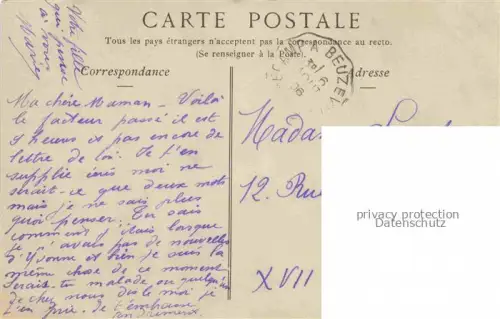 CARTE POSTALE
Tous les pays étrangers n'acceptent pas la correspondance au recto.
(Se renseigner à la Poste).
Correspondance
Adresse
Votre fille
qui pense
à vous
Marie
BEUZEV
Ma chère Maman _ Voilà
le facteur passé il est
5 heures et pas encore de
lettre de toi. Je t'en
supplie écris moi ne
serait-ce que deux mots
mais je ne sais plus
quoi penser. Tu sais
comment j'étais lorsque
je n'avais pas de nouvelles
d'Yvonne et bien je suis la
même chose de ce moment
Serais-tu malade ou quelqu'un
de chez nous dis le moi je
t'en prie. Je t'embrasse
tendrement
Madame
12. Rue
XVII
privacy protection
Datenschutz